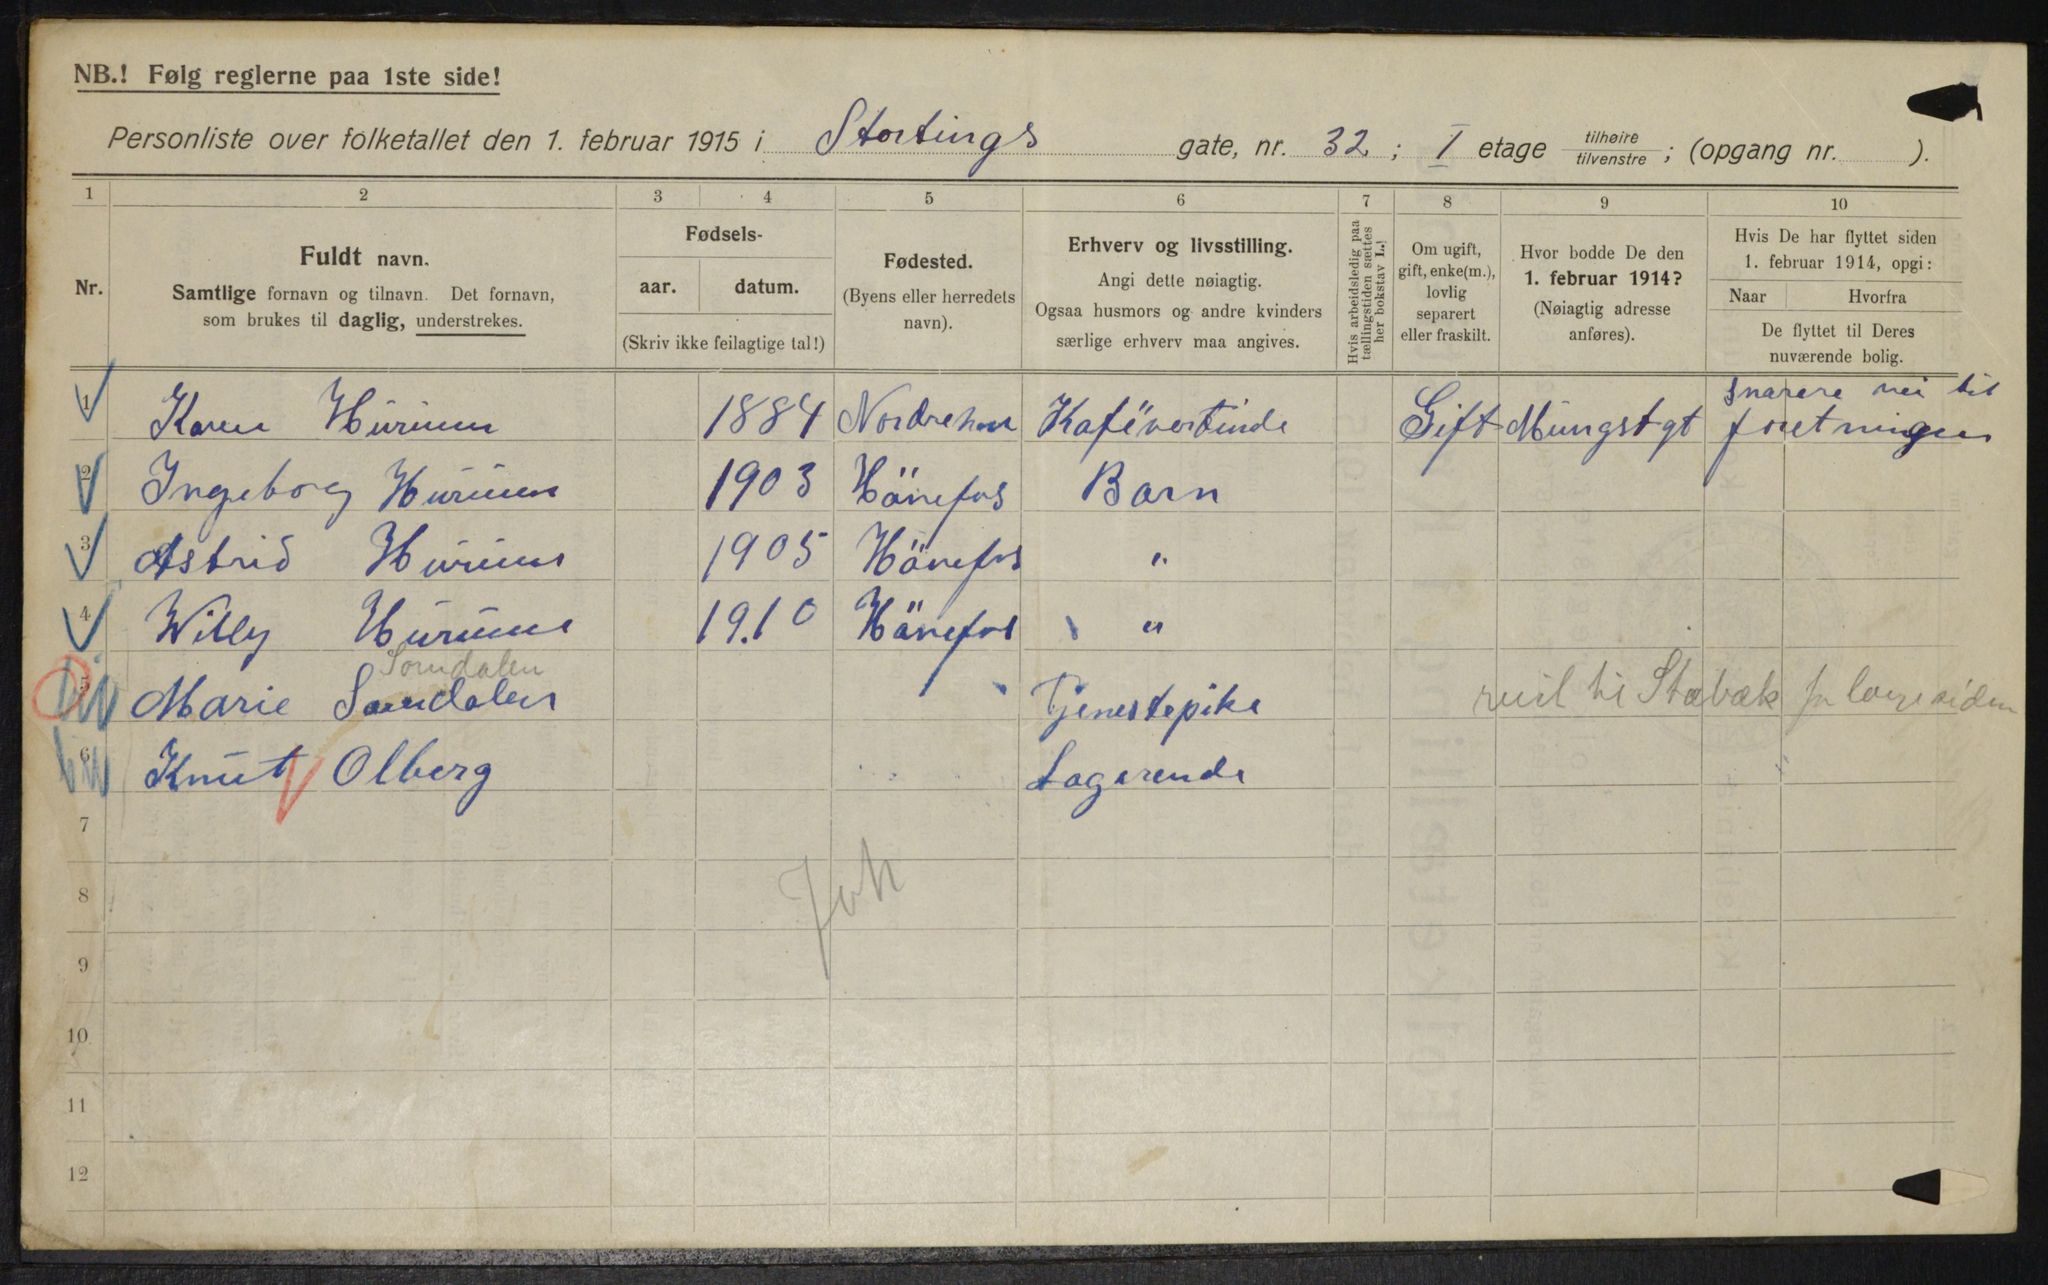 NB.! Følg reglerne paa 1ste side!
Personliste over folketallet den 1. februar 1915 i Stortings gate, nr. 32 ; I etage tilhøire tilvenstre ; (opgang nr. ).
1 2 3 4 5 6 7 8 9 10
Nr.
Fuldt navn.
Samtlige fornavn og tilnavn. Det fornavn,
som brukes til daglig, understrekes.
Fødsels-
aar. datum.
(Skriv ikke feilagtige tal!)
Fødested.
(Byens eller herredets
navn).
Erhverv og livsstilling.
Angi dette nøiagtig.
Ogsaa husmors og andre kvinders
særlige erhverv maa angives.
Hvis arbeidsledig paa
tællingstiden sættes
her bokstav L.!
Om ugift,
gift, enke(m.),
lovlig
separert
eller fraskilt.
Hvor bodde De den
1. februar 1914?
(Nøiagtig adresse
anføres).
Hvis De har flyttet siden
1. februar 1914, opgi:
Naar Hvorfra
De flyttet til Deres
nuværende bolig.
snarere vei til
1 Karen Hurum 1884 Nordrehov Kafévertinde Gift Mungstgt foretningen
2 Ingeborg Hurum 1903 Hönefos Barn
3 Astrid Hurum 1905 Hönefos "
4 Willy Hurum 1910 Hönefos "
Somdalen
5 Marie Somdalen Tjenestepike til Stabæk
6 Knut Olberg Logerende
7
8
9
10
11
12